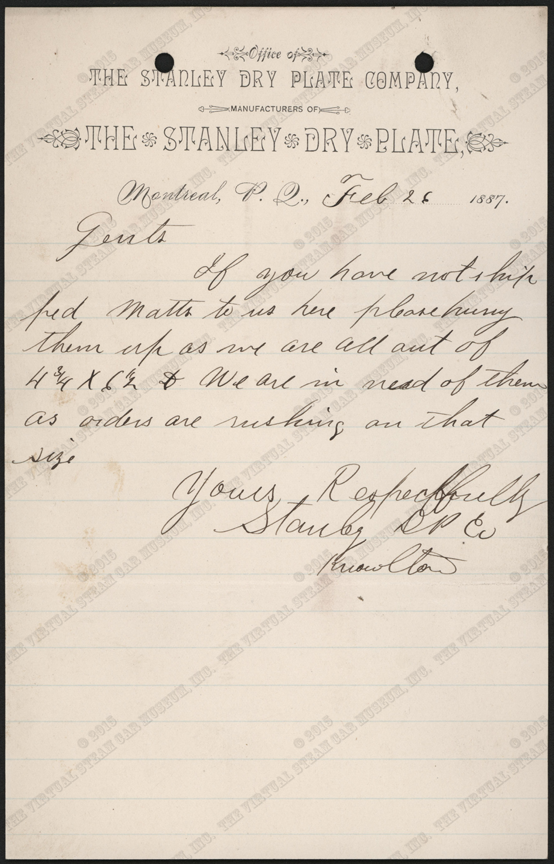 Office of
THE STANLEY DRY PLATE COMPANY,
MANUFACTURERS OF
THE STANLEY DRY PLATE,
Montreal, P. Q., Feb 26 1887.
Gents
If you have not ship
ped Matts to us here please hurry
them up as we are all out of
4 3/4 X 6 1/2 & We are in need of them
as orders are rushing on that
size
Yours Respectfully
Stanley D P Co
Knowlton